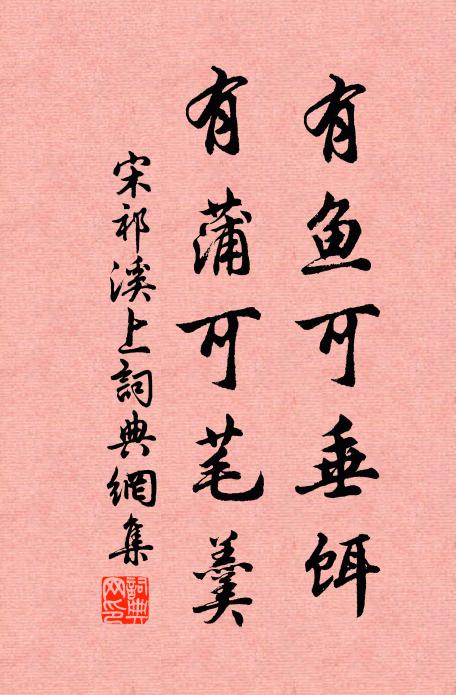 有鱼可垂饵
有蒲可芼羹
宋祁溪上詞典網集
詞典
网印